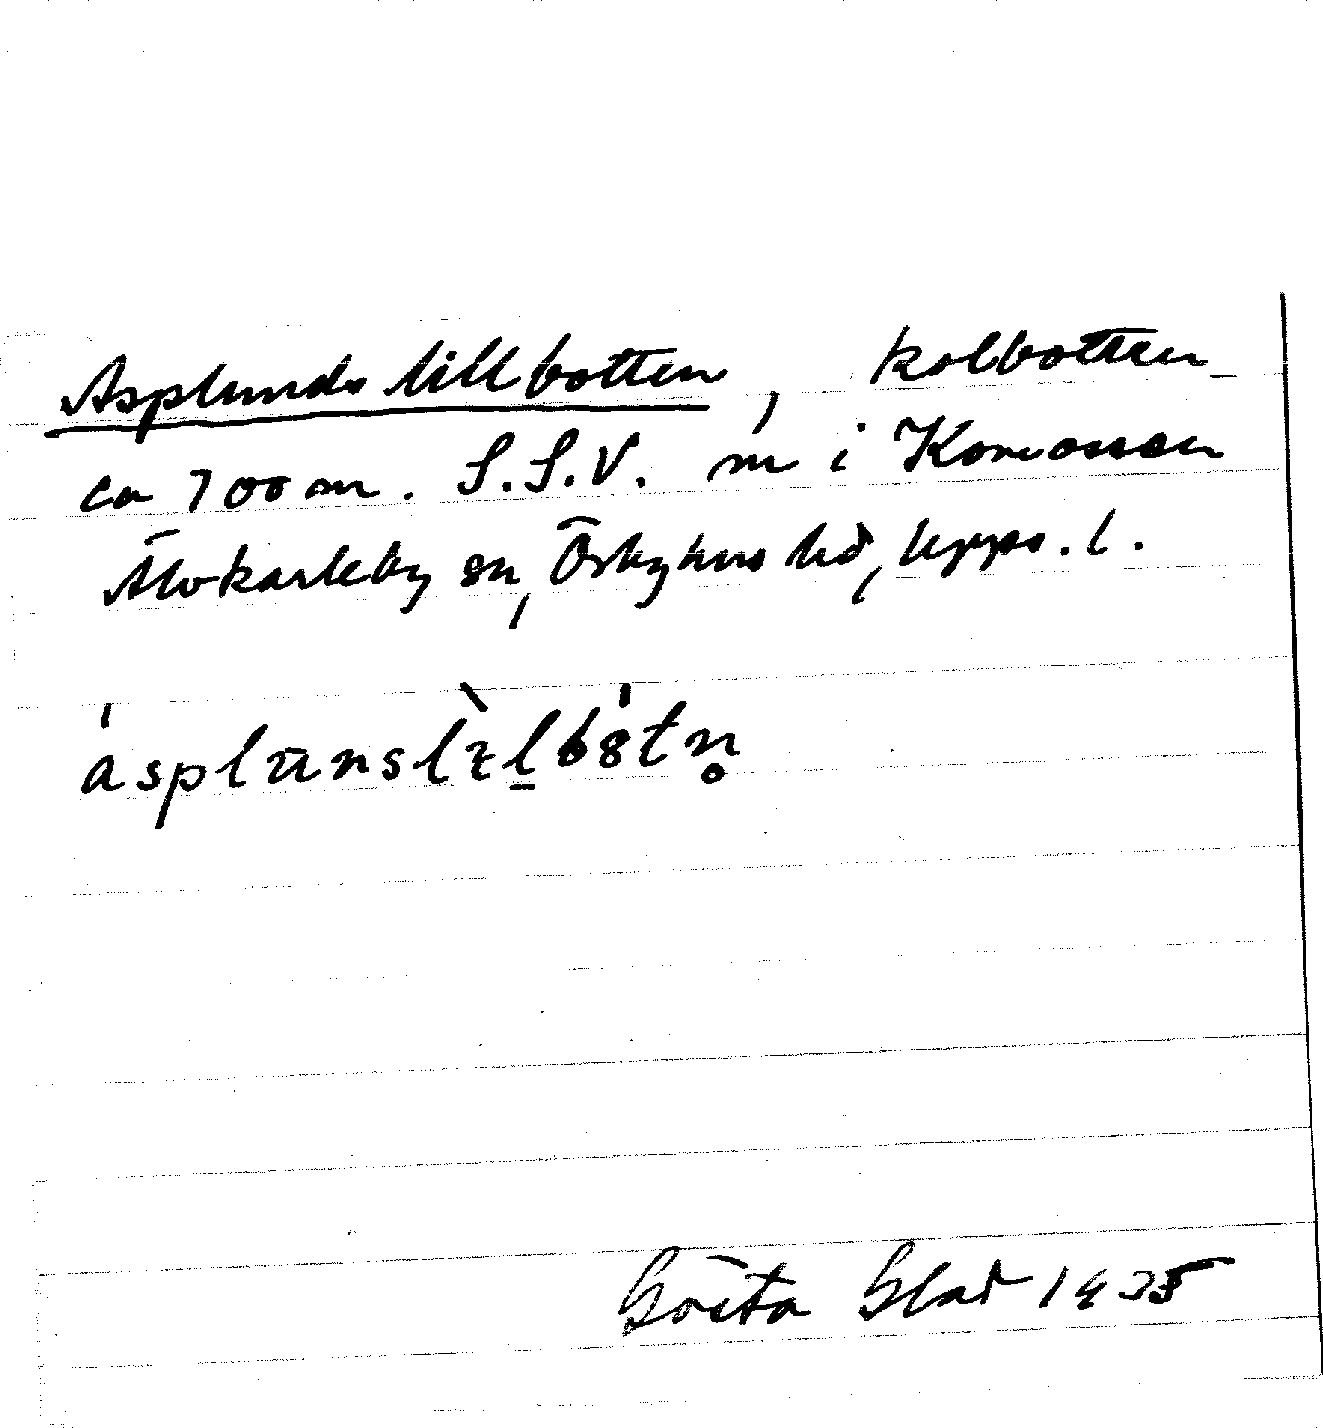 Asplunds lillbotten, kolbotten
ca 700 m. S.S.V. m i Kornåsen
Älvkarleby sn, Örbyhus hd, Upps. l.
asplūnslɩlbȣtn̥
Gösta Blad 1935